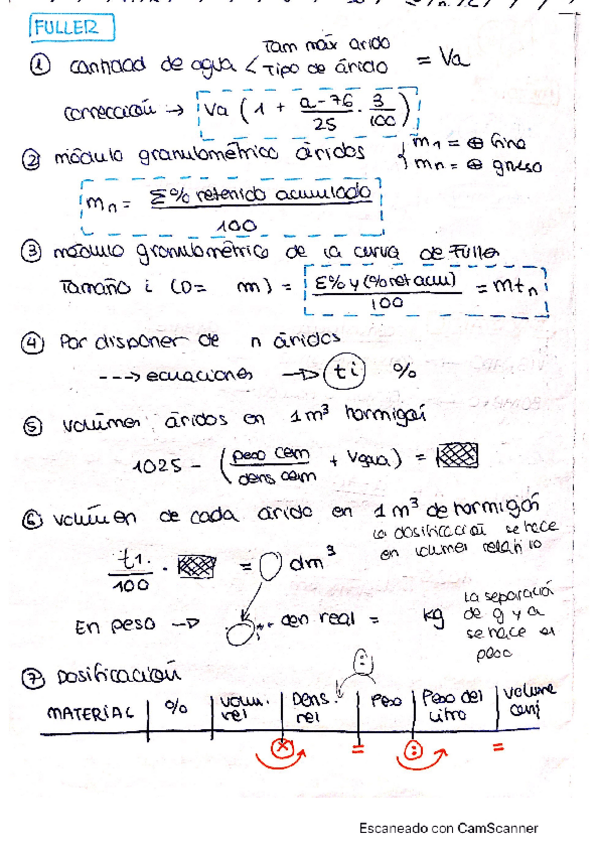 FULLER
① cantidad de agua < Tam máx arido
Tipo de árido = Va
corrección → Va ( 1 + a-76/25 · 3/100 )
② módulo granulométrico áridos { m1 = ⊕ fino
mn = ⊕ grueso
mn = Σ% retenido acumulado / 100
③ módulo granulométrico de la curva de Fuller
Tamaño i (D= m) = Σ% y (% ret acu) / 100 = mtn
④ Por disponer de n áridos
---> ecuaciones —▷ (ti) %
⑤ volumen áridos en 1m³ hormigón
1025 - ( peso cem / dens cem + Vgua ) =
⑥ volumen de cada árido en 1m³ de hormigón
la dosificación se hace
en volumen relativo
t1. / 100 · = dm³
En peso —▷ den real = kg
la separación
de g y a
se hace en
peso
⑦ Dosificación
MATERIAL | % | volum. rel | Dens. rel | Peso | Peso del litro | volume conj
× = : =
Escaneado con CamScanner